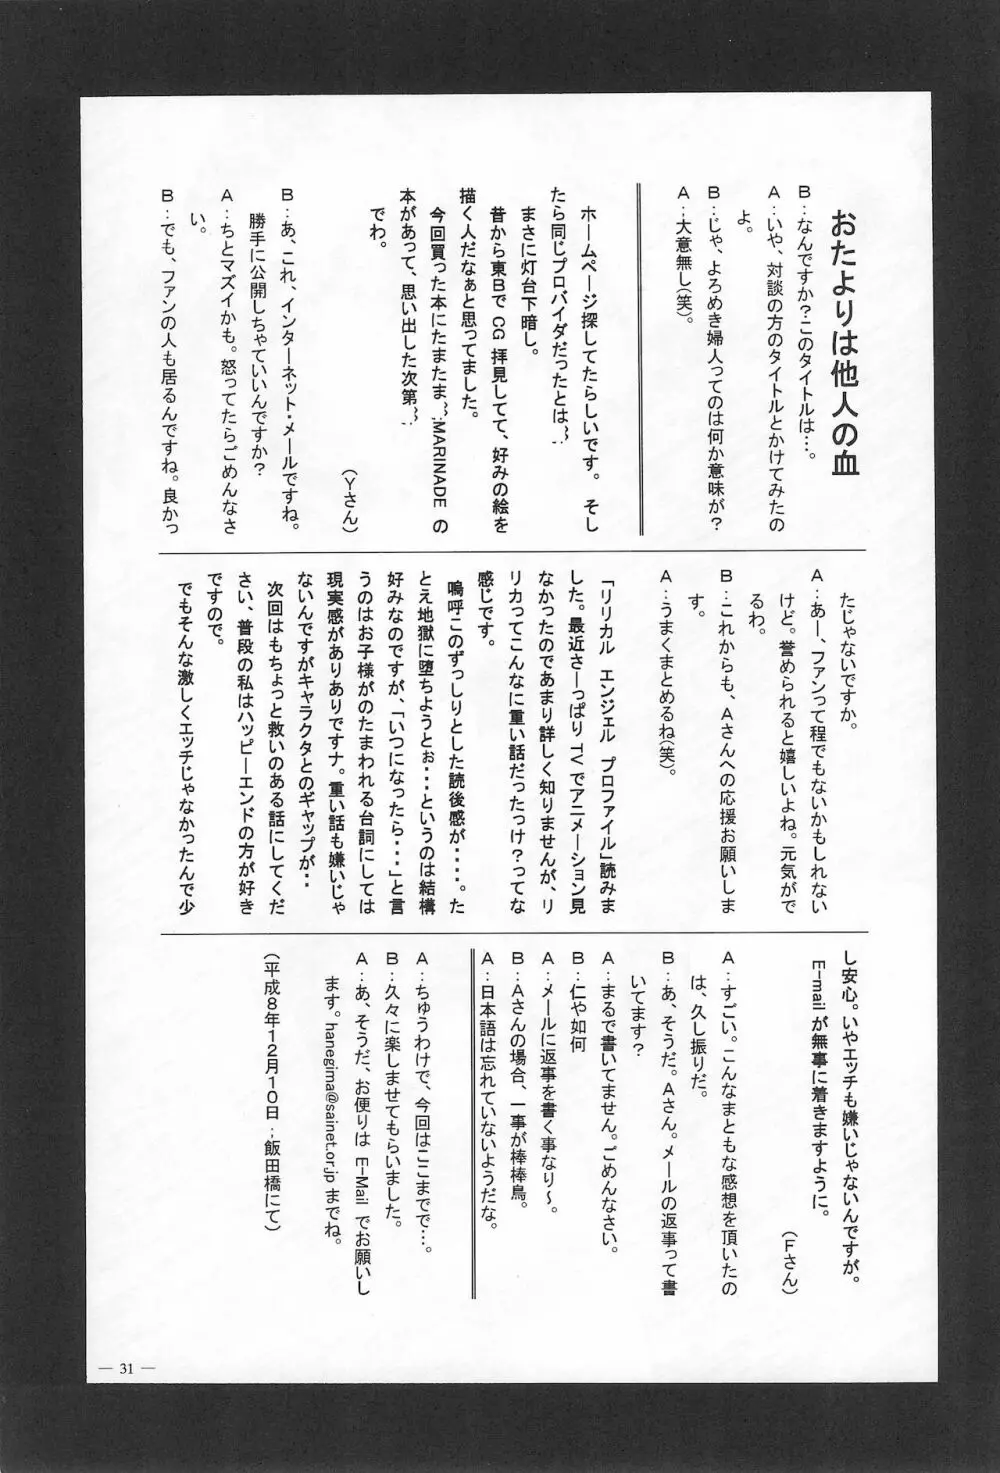 おたよりは他人の血
B：なんですか？このタイトルは…。
A：いや、対談の方のタイトルとかけてみたの
よ。
B：じゃ、よろめき婦人ってのは何か意味が？
A：大意無し(笑)。
ホームページ探してたらしいです。そし
たら同じプロバイダだったとは〜；
まさに灯台下暗し。
昔から東BでCG拝見してて、好みの絵を
描く人だなぁと思ってました。
今回買った本にたまたま〜；MARINADEの
本があって、思い出した次第〜；
でわ。
（Yさん）
B：あ、これ、インターネット・メールですね。
勝手に公開しちゃていいんですか？
A：ちとマズイかも。怒ってたらごめんなさ
い。
B：でも、ファンの人も居るんですね。良かっ
たじゃないですか。
A：あー、ファンって程でもないかもしれない
けど。誉められると嬉しいよね。元気がで
るわ。
B：これからも、Aさんへの応援お願いしま
す。
A：うまくまとめるね(笑)。
「リリカル エンジェル プロファイル」読みま
した。最近さーっぱりTVでアニメーション見
なかったのであまり詳しく知りませんが、リ
リカってこんなに重い話だったっけ？ってな
感じです。
嗚呼このずっしりとした読後感が・・・・。た
とえ地獄に堕ちようとぉ・・・というのは結構
好みなのですが、「いつになったら・・・」と言
うのはお子様がのたまわれる台詞にしては
現実感がありありですナ。重い話も嫌いじゃ
ないんですがキャラクタとのギャップが・・
次回はもちょっと救いのある話にしてくだ
さい、普段の私はハッピーエンドの方が好き
ですので。
でもそんな激しくエッチじゃなかったんで少
し安心。いやエッチも嫌いじゃないんですが。
E-mailが無事に着きますように。
（Fさん）
A：すごい。こんなまともな感想を頂いたの
は、久し振りだ。
B：あ、そうだ。Aさん。メールの返事って書
いてます？
A：まるで書いてません。ごめんなさい。
B：仁や如何
A：メールに返事を書く事なり〜。
B：Aさんの場合、一事が棒棒鳥。
A：日本語は忘れていないようだな。
A：ちゅうわけで、今回はここまでで…。
B：久々に楽しませてもらいました。
A：あ、そうだ、お便りはE-Mailでお願いし
ます。hanegima@sainet.or.jpまでね。
（平成8年12月10日：飯田橋にて）
— 31 —